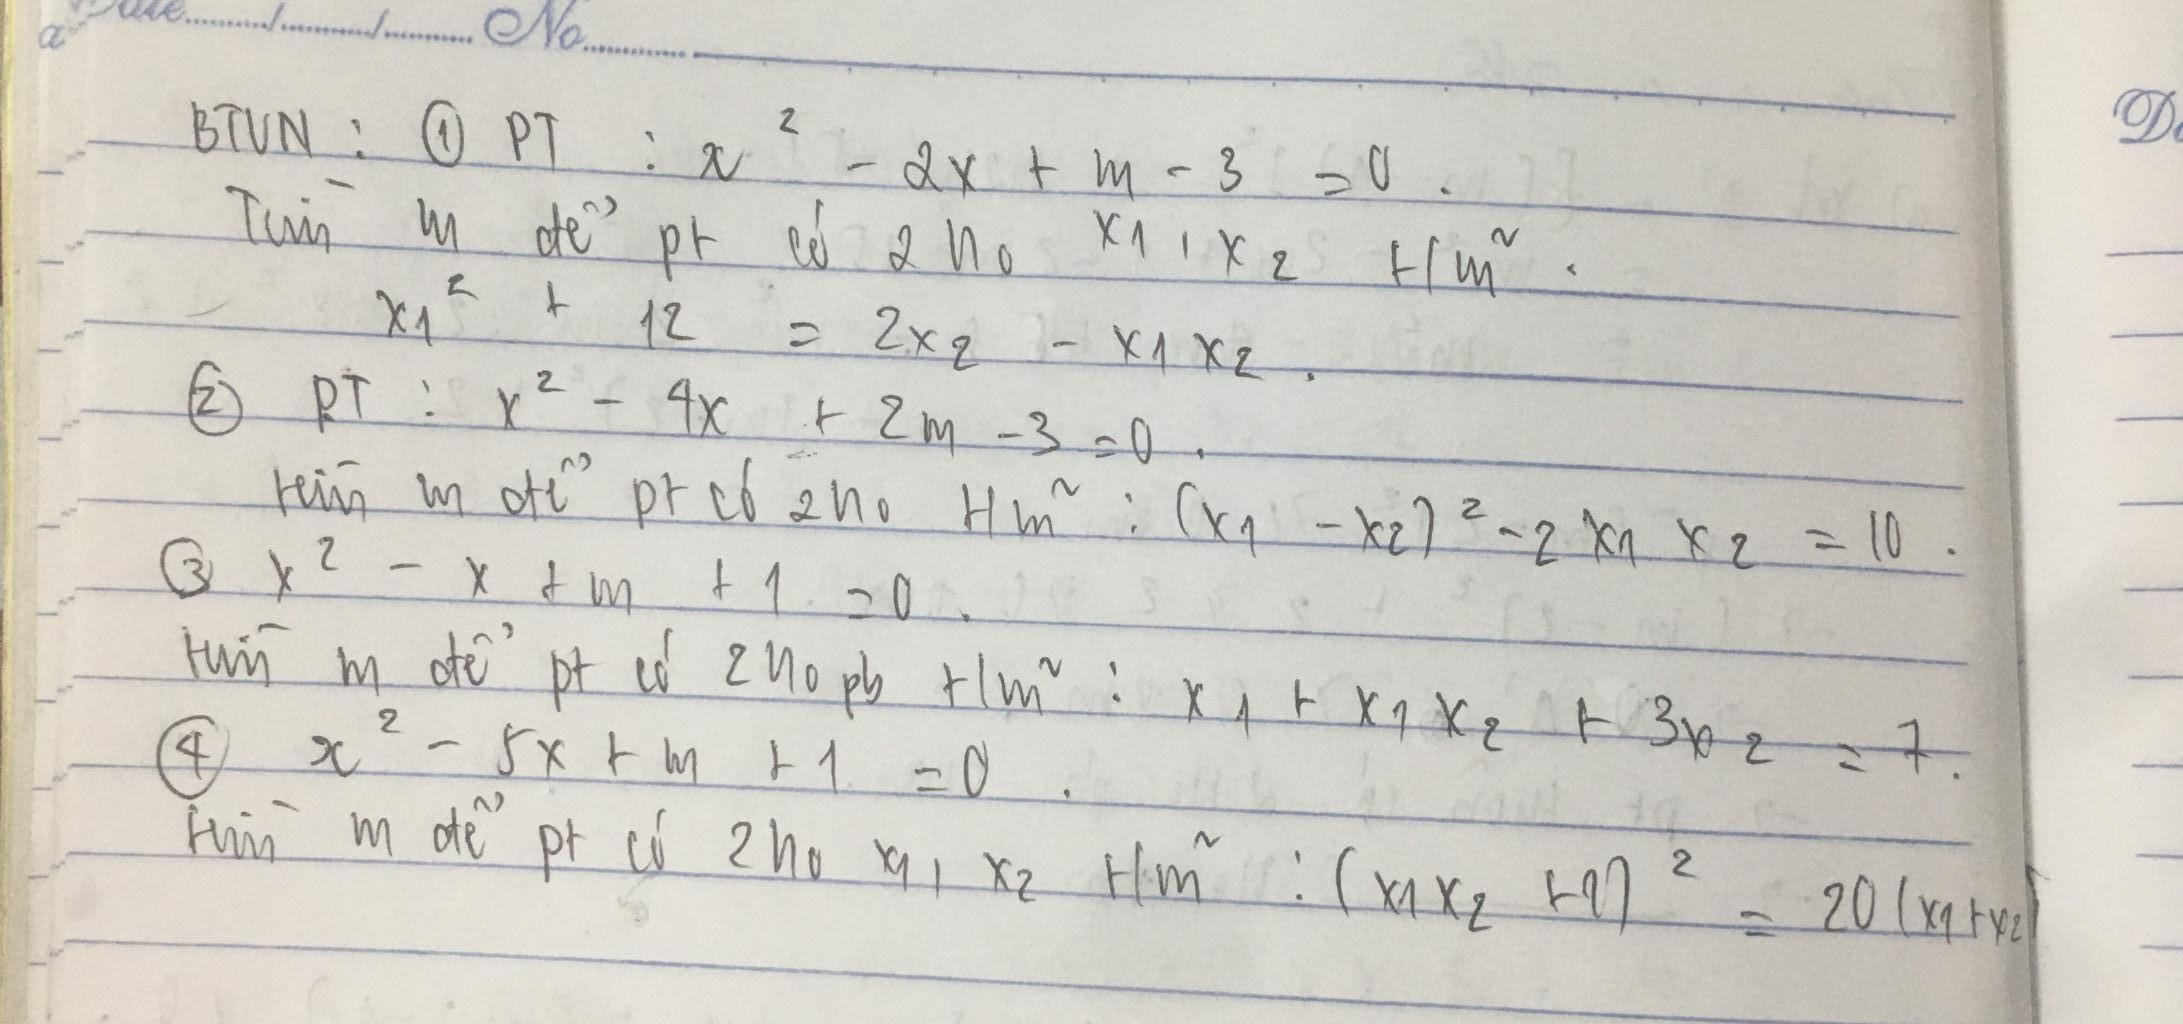 Date......../........./.......... No..............
BTVN : ① PT : x² - 2x + m - 3 = 0 .
Tìm m để pt có 2 n₀ x₁ , x₂ t/m̃ .
x₁² + 12 = 2x₂ - x₁x₂ .
② PT : x² - 4x + 2m - 3 = 0 .
tìm m để pt có 2 n₀ t/m̃ : (x₁ - x₂)² - 2x₁x₂ = 10 .
③ x² - x + m + 1 = 0 .
tìm m để pt có 2 n₀ pb t/m̃ : x₁ + x₁x₂ + 3x₂ = 7 .
④ x² - 5x + m + 1 = 0 .
tìm m để pt có 2 n₀ x₁, x₂ t/m̃ : (x₁x₂ + 1)² = 20(x₁ + x₂)